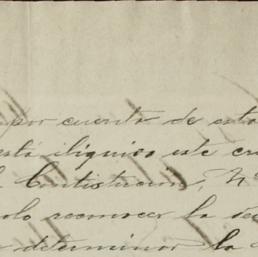 por cuenta de esta
está ilíquido este cré
Contestacion, 4º
solo reconocer la
determinar la